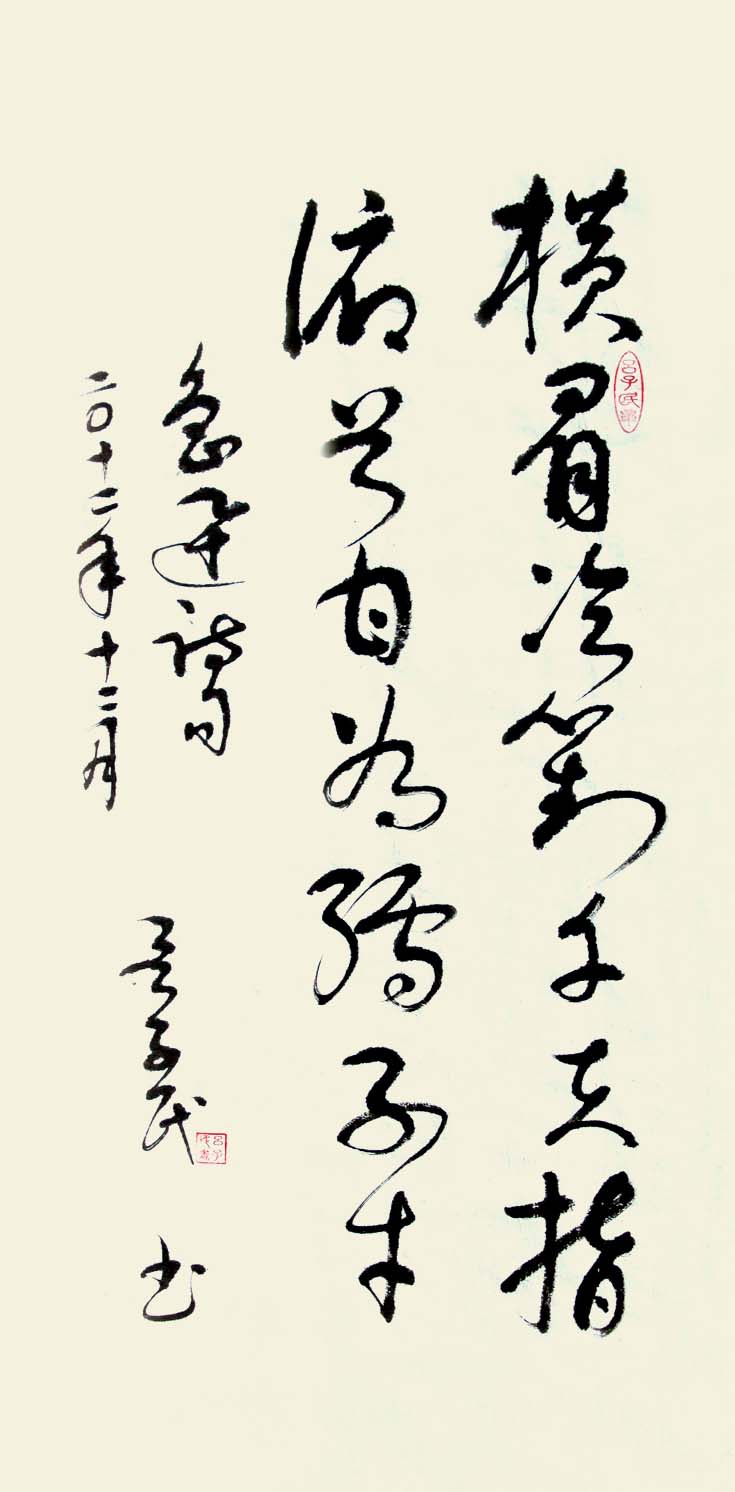 横眉冷对千夫指
俯首甘为孺子牛
鲁迅诗句
二〇十二年十二月
吕子民
书
吕子民印